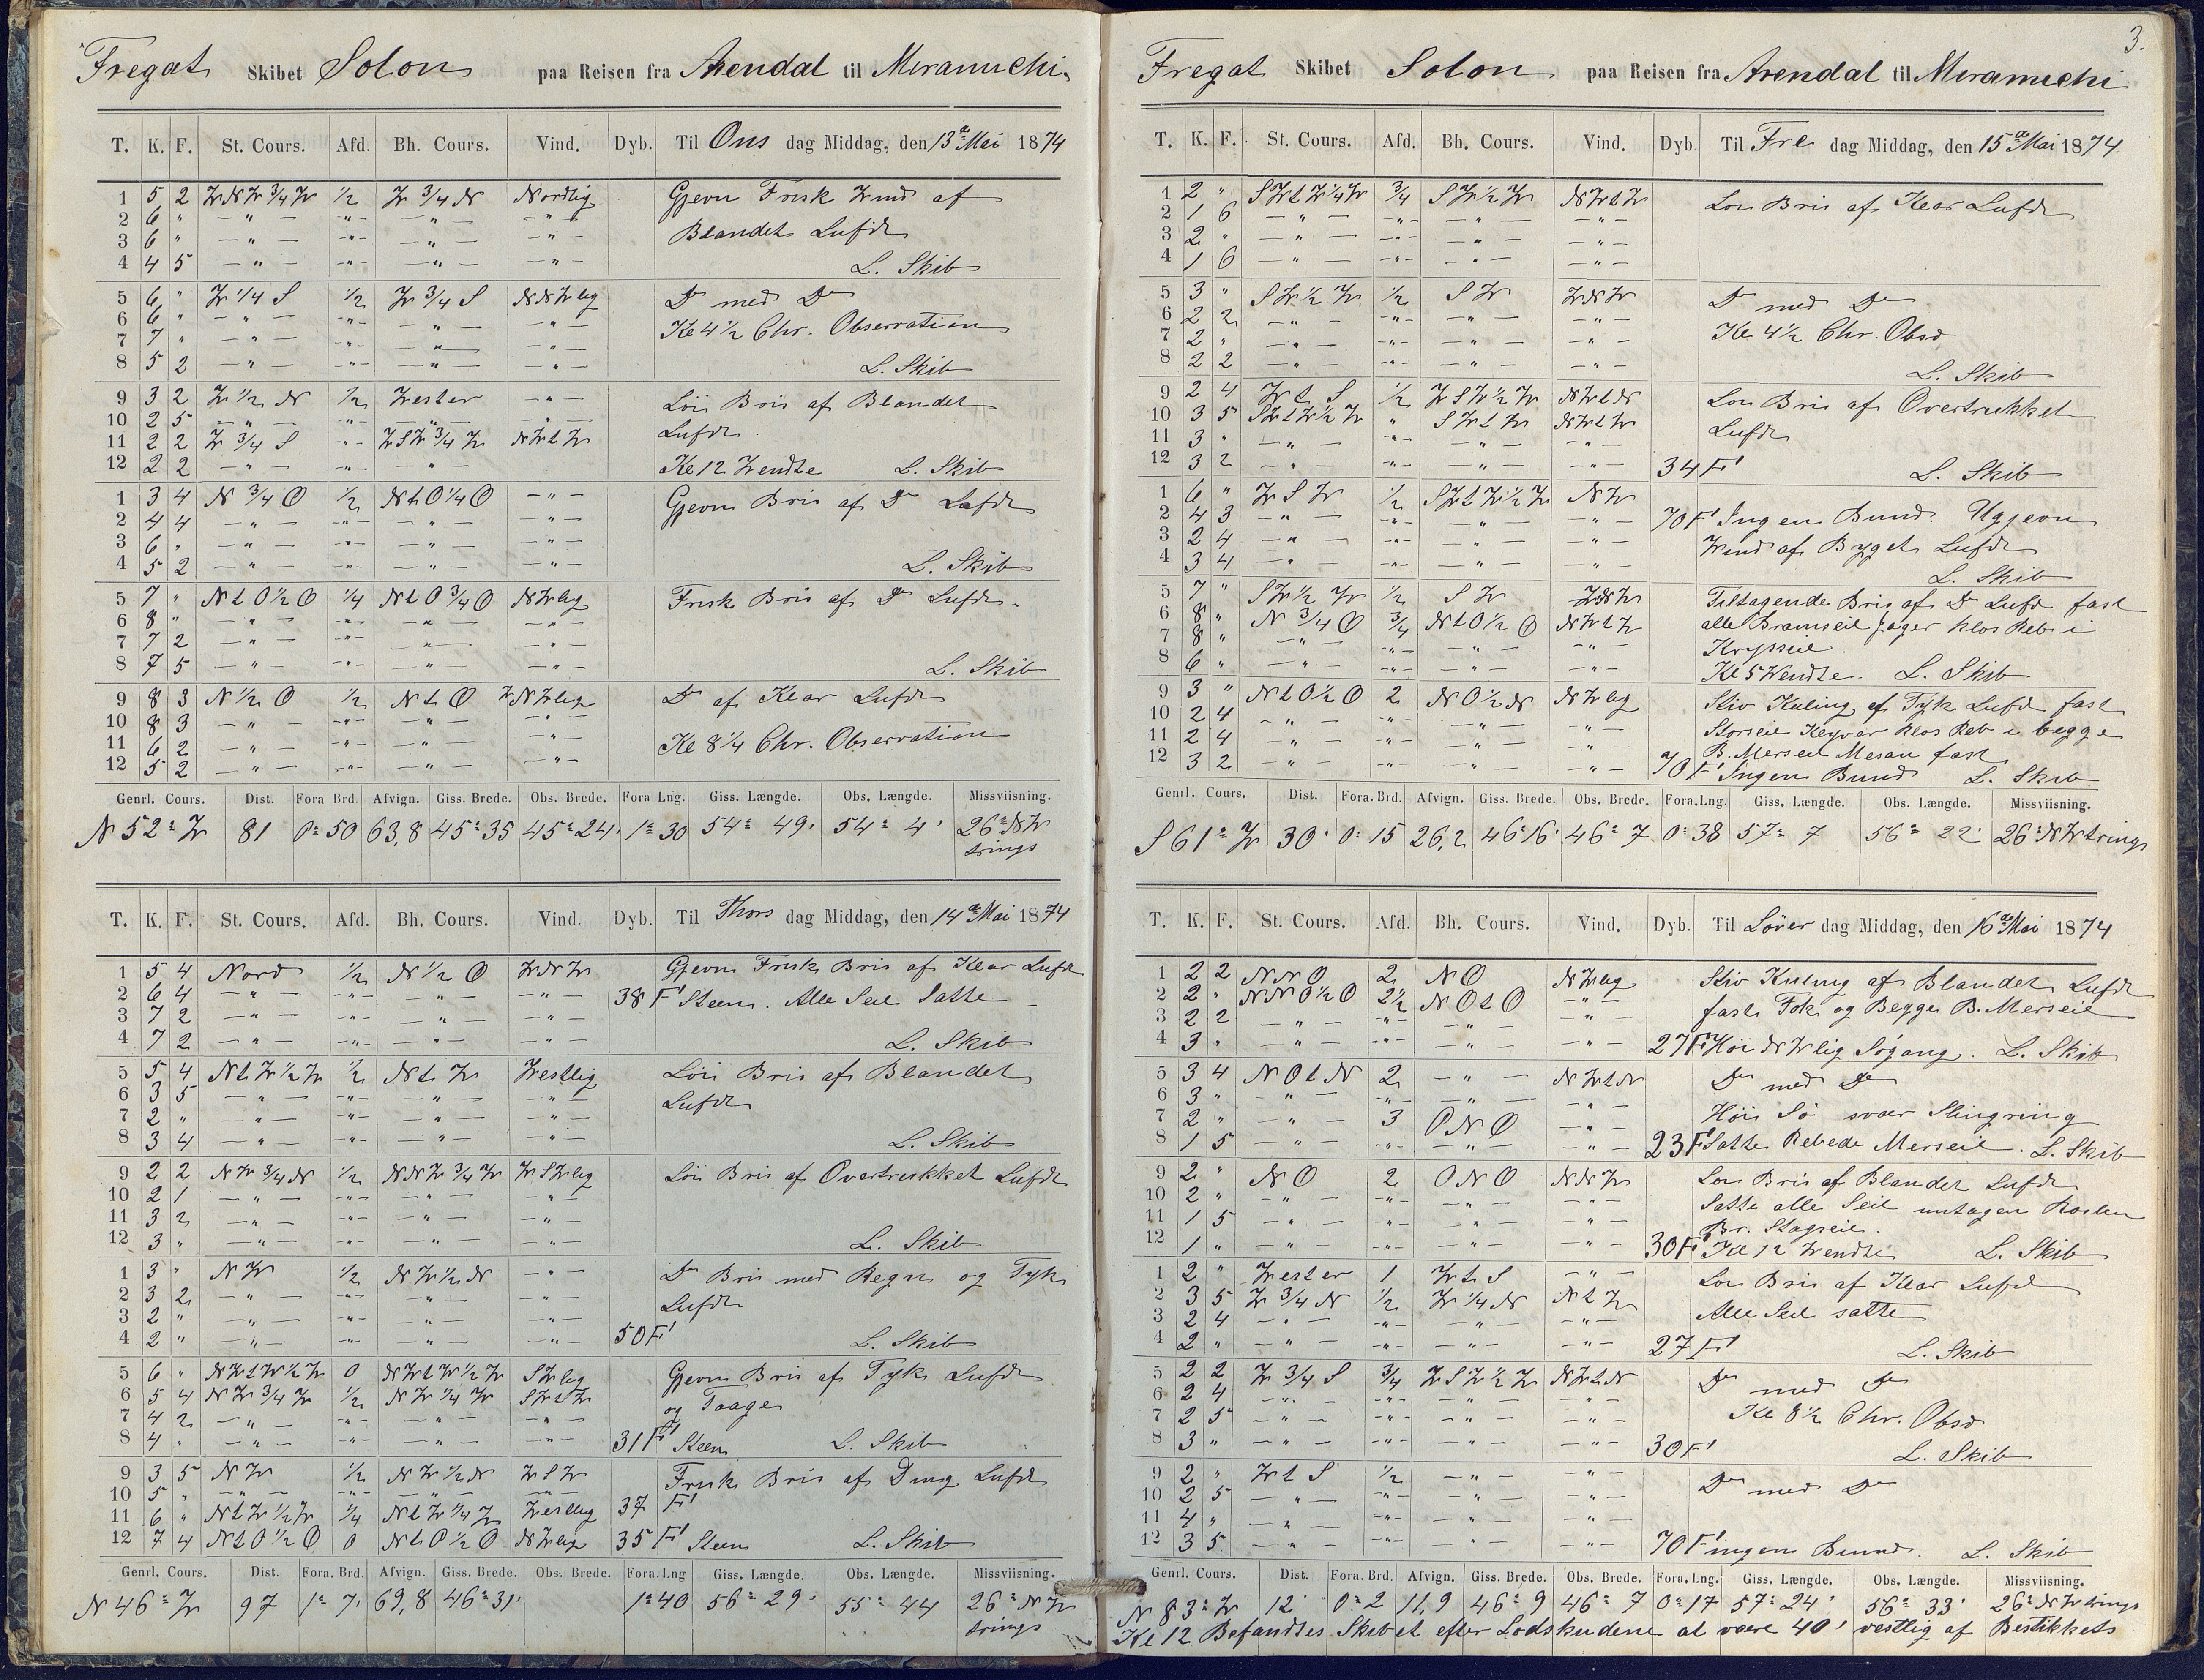 Fregat Skibet Solon paa Reisen fra Arendal til Miramichi
T. K. F. St. Cours. Afd. Bh. Cours. Vind. Dyb. Til Ons dag Middag, den 13de Mai 1874
1 5 2 WNW 3/4 W 1/2 W 3/4 N Nordlig Gjevn Frisk Wind af
2 6 " — " — - " - — " — — " — Blandet Lufdt
3 6 " — " — - " - — " — — " —
4 4 5 — " — - " - — " — — " — L. Skib
5 6 " W 1/4 S 1/2 W 3/4 S NNWlig Do med Do
6 6 " — " — - " - — " — — " — Kl 4 1/2 Chr. Observation
7 7 " — " — - " - — " — — " —
8 5 2 — " — - " - — " — — " — L. Skib
9 3 2 W 1/2 N 1/2 Wester — " — Löi Bris af Blandet
10 2 5 — " — — " — — " — Lufdt.
11 2 2 W 3/4 S - " - WSW 3/4 W NWtW
12 2 2 — " — - " - — " — Kl 12 Wendte L. Skib
1 3 4 N 3/4 O 1/2 NtO 1/4 O — " — Gjevn Bris af Do Lufdt
2 4 4 — " — - " - — " — — " —
3 6 " — " — - " - — " — — " —
4 5 2 — " — - " - — " — — " — L. Skib
5 7 " NtO 1/2 O 1/4 NtO 3/4 O NWlig Frisk Bris af Do Lufdt.
6 8 " — " — - " - — " — — " —
7 7 2 — " — - " - — " — — " —
8 7 5 — " — - " - — " — — " — L. Skib
9 8 3 N 1/2 O 1/2 NtO WNWlig Do af Klar Lufdt
10 8 3 — " — - " - — " — — " —
11 6 2 — " — - " - — " — — " — Kl 8 1/4 Chr. Observation
12 5 2 — " — - " - — " — — " —
Genrl. Cours. Dist. Fora Brd. Afvign. Giss. Brede. Obs. Brede. Fora Lng. Giss. Længde. Obs. Længde. Missviisning.
N 52° W 81 0° 50 63,8 45° 35 45° 24' 1° 30 54° 49' 54° 4' 26° NW
trings
T. K. F. St. Cours. Afd. Bh. Cours. Vind. Dyb. Til Thors dag Middag, den 14de Mai 1874
1 5 4 Nord 1/2 N 1/2 O WNW Gjevn Frisk Bris af Klar Lufdt
2 6 4 — " — - " - — " — — " — 38 F' Steen. Alle Seil Satte
3 7 2 — " — - " - — " — — " —
4 7 2 — " — - " - — " — L. Skib
5 5 4 NtW 1/2 W 1/2 NtW Westlig Löi Bris af Blandet
6 3 5 — " — - " - — " — — " — Lufdt
7 2 " — " — - " - — " — — " —
8 3 4 — " — - " - — " — — " — L. Skib
9 2 2 NW 3/4 N 1/2 NNW 3/4 W WSWlig Löi Bris af Overtrukket Lufdt
10 2 1 — " — - " - — " — — " —
11 3 2 — " — - " - — " — — " —
12 3 " — " — - " - — " — — " — L. Skib
1 3 " NW 1/2 NW 1/2 N — " — Do Bris med Regn og Tyk
2 3 2 — " — - " - — " — — " — Lufdt
3 2 " — " — - " - — " — — " —
4 2 " — " — - " - — " — — " — 50 F' L. Skib
5 6 " NWtW 1/2 W 0 NWtW 1/2 W SWlig Gjevn Bris af Tyk Lufdt
6 5 4 NW 3/4 W 1/2 NW 1/4 W SWtW og Taage
7 4 2 — " — - " - — " — — " —
8 4 " — " — - " - — " — — " — 31 F' Steen L. Skib
9 3 5 NW 1/2 NW 1/2 N WSW Frisk Bris af Diesig Lufdt
10 5 " — " — - " - — " — — " —
11 6 " NtW 1/2 W 1/4 NtW 1/4 W Westlig 37 F'
12 7 4 NtO 1/2 O 0 NtO 1/2 O NWlig 35 F' Steen L. Skib
Genrl. Cours. Dist. Fora. Brd. Afvign. Giss. Brede. Obs. Brede. Fora. Lng Giss. Længde. Obs. Længde. Missviisning.
N 46° W 97 1° 7' 69,8 46° 31' 1° 40 56° 29' 55° 44 26° NW
trings
3.
Fregat Skibet Solon paa Reisen fra Arendal til Miramichi
T. K. F. St. Cours. Afd. Bh. Cours. Vind. Dyb Til Fre dag Middag, den 15de Mai 1874
1 2 " SWtW 1/4 W 3/4 SW 1/2 W NWtW Löi Bris af Klar Lufdt
2 1 6 — " — - " - — " — — " —
3 2 " — " — - " - — " — — " —
4 1 6 — " — - " - — " — — " —
5 3 " SW 1/2 W 1/2 SW WNW Do med Do
6 2 2 — " — - " - — " — — " — Kl 4 1/2 Chr. Obsv
7 2 " — " — - " - — " — — " —
8 2 2 — " — - " - — " — — " — L. Skib
9 2 4 WtS 1/2 WSW 1/2 W NWtN Löi Bris af Overtrukket
10 3 5 SWtW 1/2 W " SWtW NWtW Lufdt
11 3 " — " — - " - — " — — " —
12 3 2 — " — - " - — " — — " — 34 F' L. Skib
1 6 " WSW 1/2 SWtW 1/2 W NW
2 4 3 — " — - " - — " — — " — 70 F' Ingen Bund. Ugjevn
3 2 4 — " — - " - — " — — " — Wind af Byget Lufdt
4 3 4 — " — - " - — " — — " — L. Skib
5 7 " SW 1/2 W 1/2 SW WNW Tiltagende Bris af Do Lufdt fast
6 8 " N 3/4 O 3/4 NtO 1/2 O NWtW alle Bramseil Jager klos Reb i
7 8 " — " — - " - — " — — " — Krysseil.
8 6 " — " — - " - — " — — " — Kl 5 Wendte. L. Skib
9 3 " NtO 1/2 O 2 NO 1/2 N NWlig Stiv Kuling af Tyk Lufdt fast
10 2 4 — " — - " - — " — — " — Storseil Klyver klos Reb i begge
11 2 4 — " — - " - — " — — " — B. Merseil Mesan fast
12 3 2 — " — - " - — " — — " — 70 F' Ingen Bund L. Skib
Genrl. Cours. Dist. Fora. Brd. Afvign. Giss. Brede. Obs. Brede. Fora. Lng. Giss. Længde. Obs. Længde. Missviisning.
S 61° W 30' 0° 15 26,2 46° 16' 46° 7 0° 38 57° 7 56° 22' 26° NW trings
T. K. F. St. Cours. Afd. Bh. Cours. Vind. Dyb. Til Löver dag Middag, den 16de Mai 1874
1 2 2 NNO 2 NO NWlig Stiv Kuling af Blandet Lufdt
2 2 " NNO 1/2 O 2 1/2 NOtO — " — fast Fok og Begge B. Merseil
3 2 2 — " — - " - — " — — " —
4 3 " — " — - " - — " — — " — 27 F' Höi NWlig Sögang. L. Skib
5 3 4 NOtN 2 — " — NWtN Do med Do
6 3 " — " — - " - — " — — " —
7 2 " — " — 3 ONO — " — Höi Sö svær Slingring
8 1 5 — " — - " - — " — — " — 23 F' Satte Rebede Merseil. L. Skib
9 2 " NO 2 ONO NNW Löi Bris af Blandet Lufdt
10 2 " — " — - " - — " — — " — Satte alle Seil untagen
11 1 5 — " — - " - — " — — " — Br. Stagseil.
12 1 " — " — - " - — " — — " — 30 F' Kl 12 Wendte L. Skib
1 2 " Wester 1 WtS — " — Löi Bris af Klar Lufdt
2 3 5 W 3/4 N 1/2 W 1/4 N NtW Alle Seil satte
3 2 4 — " — - " - — " — — " —
4 2 " — " — - " - — " — — " — 27 F' L. Skib
5 2 2 W 3/4 S 3/4 WSW 1/2 W NWtN Do med Do
6 2 4 — " — - " - — " — — " —
7 2 5 — " — - " - — " — — " — Kl 8 1/2 Chr. Obsv
8 3 " — " — - " - — " — — " — 30 F' L. Skib
9 2 " WtS 1/2 — " — — " — Do med Do
10 2 5 — " — - " - — " — — " —
11 4 " — " — - " - — " — — " —
12 3 5 — " — - " - — " — — " — 70 F' ingen Bund. L. Skib
Genrl. Cours. Dist. Fora. Brd. Afvign. Giss. Brede. Obs. Brede. Fora. Lng. Giss. Længde. Obs. Længde. Missviisning.
N 83° W 12' 0° 2 11,9 46° 9 46° 7 0° 17 57° 24' 56° 33' 26° NW trings
Kl 12 Befandtes Skibet efter Lodskudene at være 40' vestlig af Bestikkets